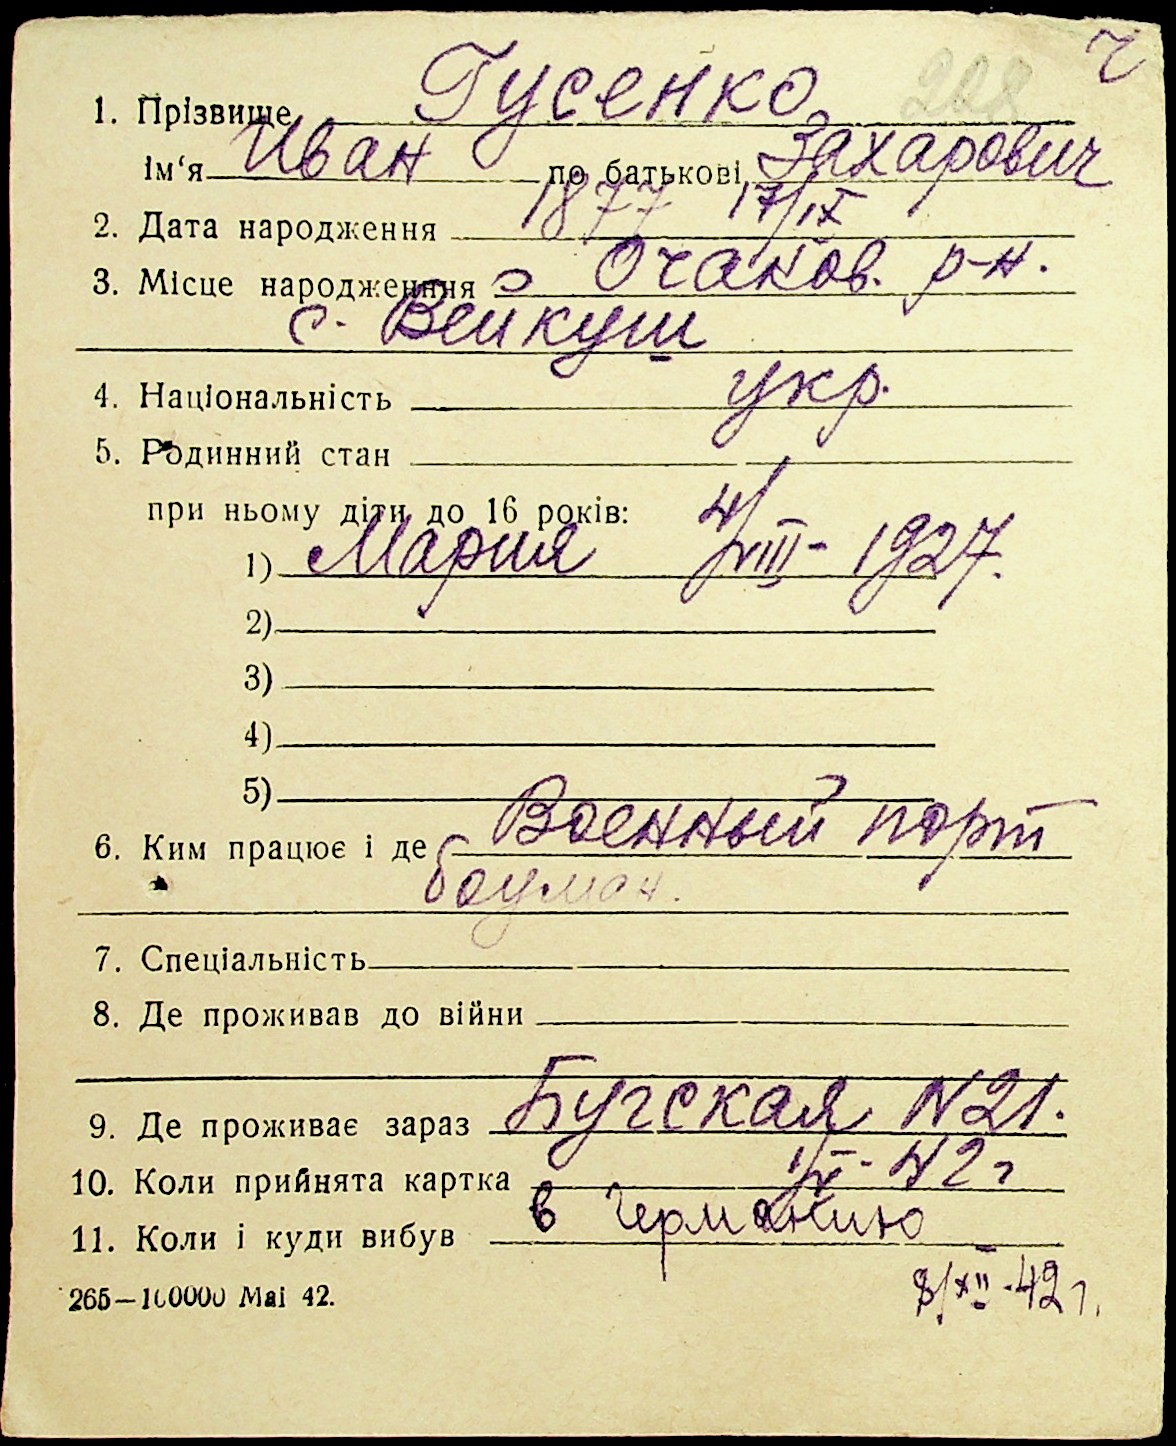 ч
228
1. Прізвище Гусенко
ім‘я Иван по батькові Захарович
2. Дата народження 1877 17/IX
3. Місце народження Очаков. р-н.
с. Вейкуш
4. Національність укр.
5. Родинний стан
при ньому діти до 16 років:
1) Мария 4/VIII - 1927.
2)
3)
4)
5)
6. Ким працює і де Военный порт
боцман.
7. Спеціальність
8. Де проживав до війни
9. Де проживає зараз Бугская N 21.
10. Коли прийнята картка 1/X - 42 г
11. Коли і куди вибув в Германию
265—100000 Маі 42. 8/XII - 42 г.